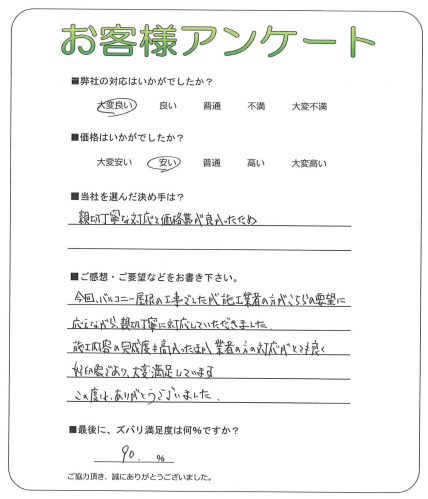 お客様アンケート
■弊社の対応はいかがでしたか？
大変良い 良い 普通 不満 大変不満
■価格はいかがでしたか？
大変安い 安い 普通 高い 大変高い
■当社を選んだ決め手は？
親切丁寧な対応と価格帯が良かったため
■ご感想・ご要望などをお書き下さい。
今回、バルコニー屋根の工事でしたが施工業者の方がこちらの要望に
応えながら、親切丁寧に対応していただきました。
施工内容の完成度も高かったほか業者の方の対応がとても良く
好印象であり、大変満足しています
この度は、ありがとうございました。
■最後に、ズバリ満足度は何％ですか？
90. ％
ご協力頂き、誠にありがとうございました。